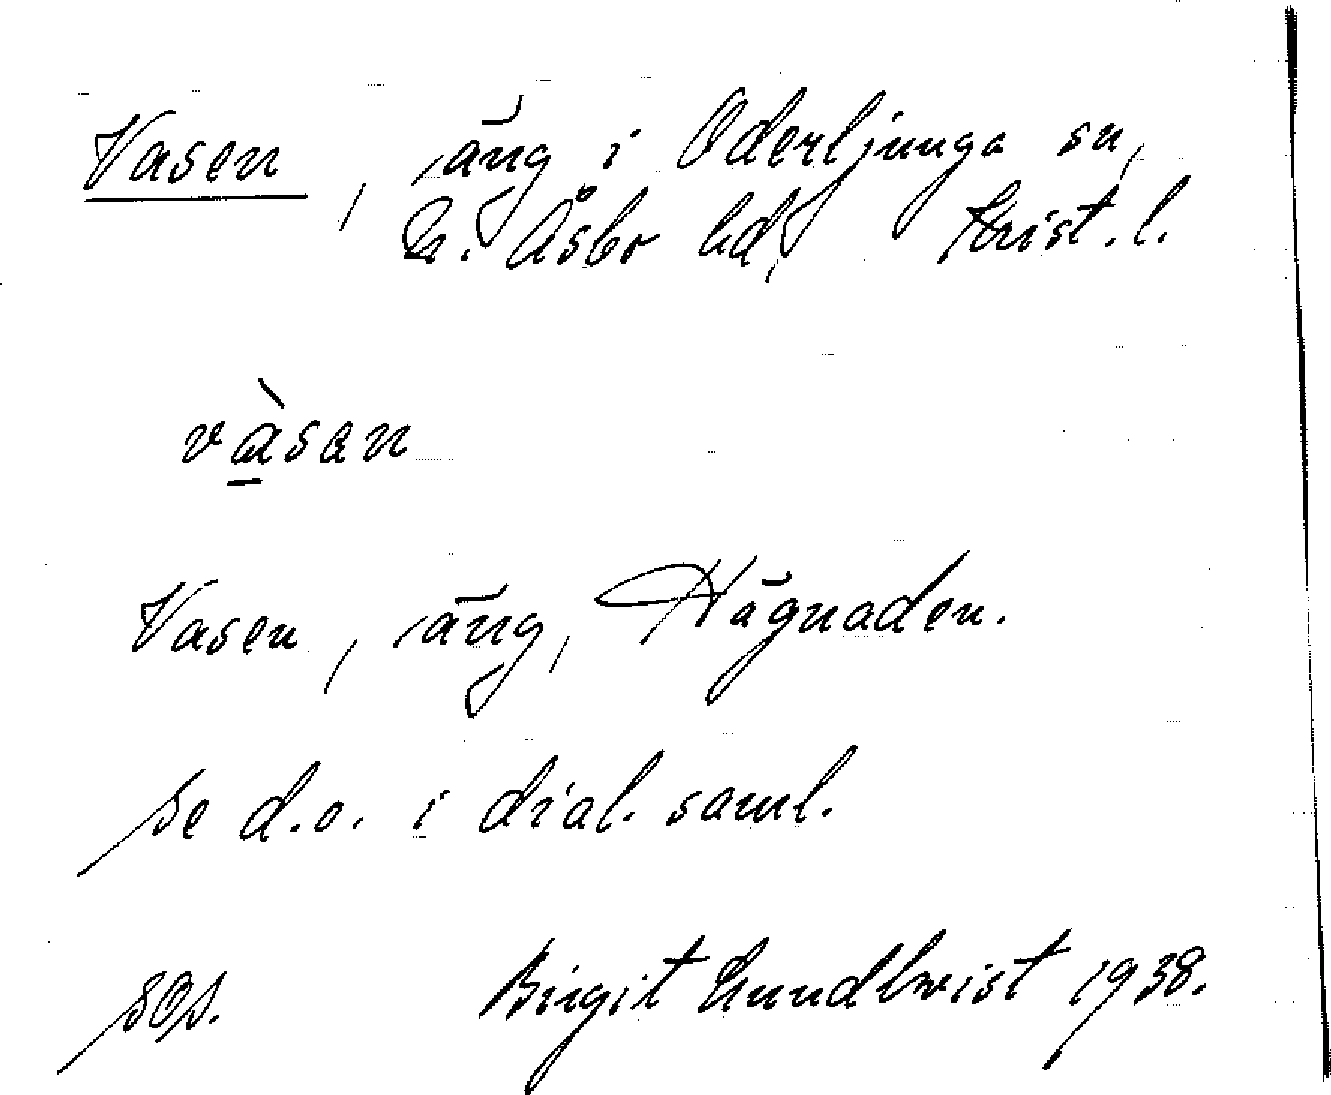 Vasen, äng i Oderljunga sn,
N. Åsbo hd, Krist. l.
vàsan
Vasen, äng, Hägnaden.
se d.o. i dial. saml.
Birgit Lundkvist 1938.